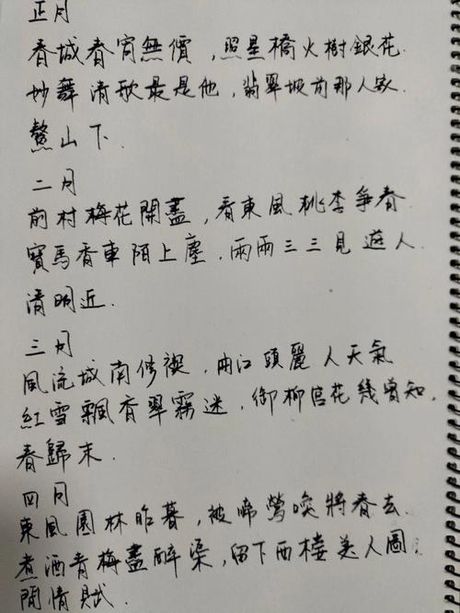 正月
春城春宵無價，照星橋火樹銀花．
妙舞清歌最是他，翡翠坡前那人家．
鰲山下．
二月
前村梅花開盡，看東風桃李爭春．
寶馬香車陌上塵，兩兩三三見遊人．
清明近．
三月
風流城南修禊，曲江頭麗人天氣
紅雪飄香翠霧迷，御柳宮花幾曾知，
春歸未．
四月
東風園林昨暮，被啼鶯喚將春去．
煮酒青梅盡醉渠，留下西樓美人圖；
閒情賦．